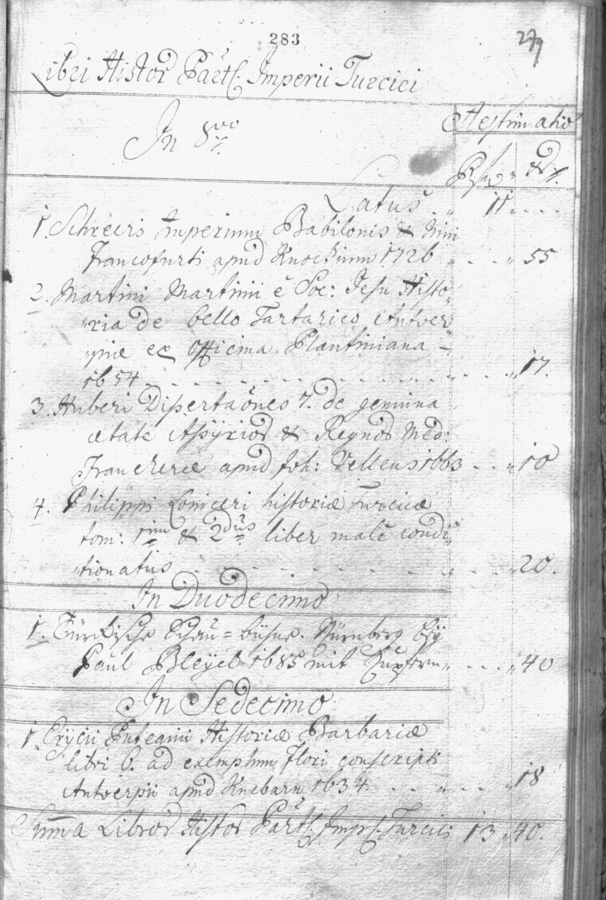 283
279
Libri Histor Partl. Imperii Turcici
In 8vo
Aestimatio
Rfl. d.
Latus 11
1. Imperium Babilonis & Nini
Francofurti apud Knochium 1726 55
2. Martini Martinii e Soc: Jesu Histo-
ria de bello Tartarico Antver-
piae ex Officina Plantiniana
1654 17.
3. Huberi Dissertaōnes 7. de gemina
aetate Assyrior & Regnor Med:
Franekerae apud Joh: Vellens 1663 10
4. Philippi Loniceri historiae Turcicae
tom: 1mus & 2dus liber male condi-
tionatus 20.
In Duodecimo
1. Türckische Schau-bühne. Nürnberg bey
Paul 1685 mit Kupfern 40
In Sedecimo
1. Erycii Puteanii Historiae Barbaricae
libri 6. ad exemplum flori conscripti
Antverpii apud 1634 18
Summa Libror Histor Partl. Imp. Turcici 13 40.